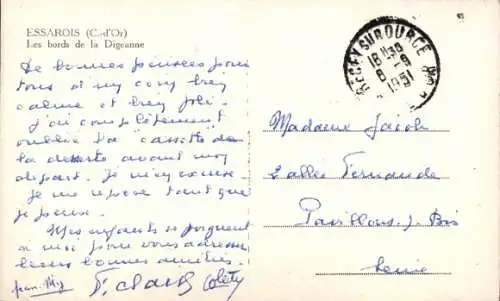 ESSAROIS (C.-d'Or)
Les bords de la Digeanne
De bonnes pensées pour
tous d'un coin très
calme et très joli.
J'ai complètement
oublié la cassette de
la avant mon
départ. Je m'excuse.
Je me repose tant que
je peux.
Mes enfants se joignent
à moi pour vous adresser
leurs bonnes amitiés.
Jean-
RECEY SUR OURCE
18 H 30
8 - 8
1951
Madame Jacob
2 allée Fernande
Pavillons s. Bois
Seine